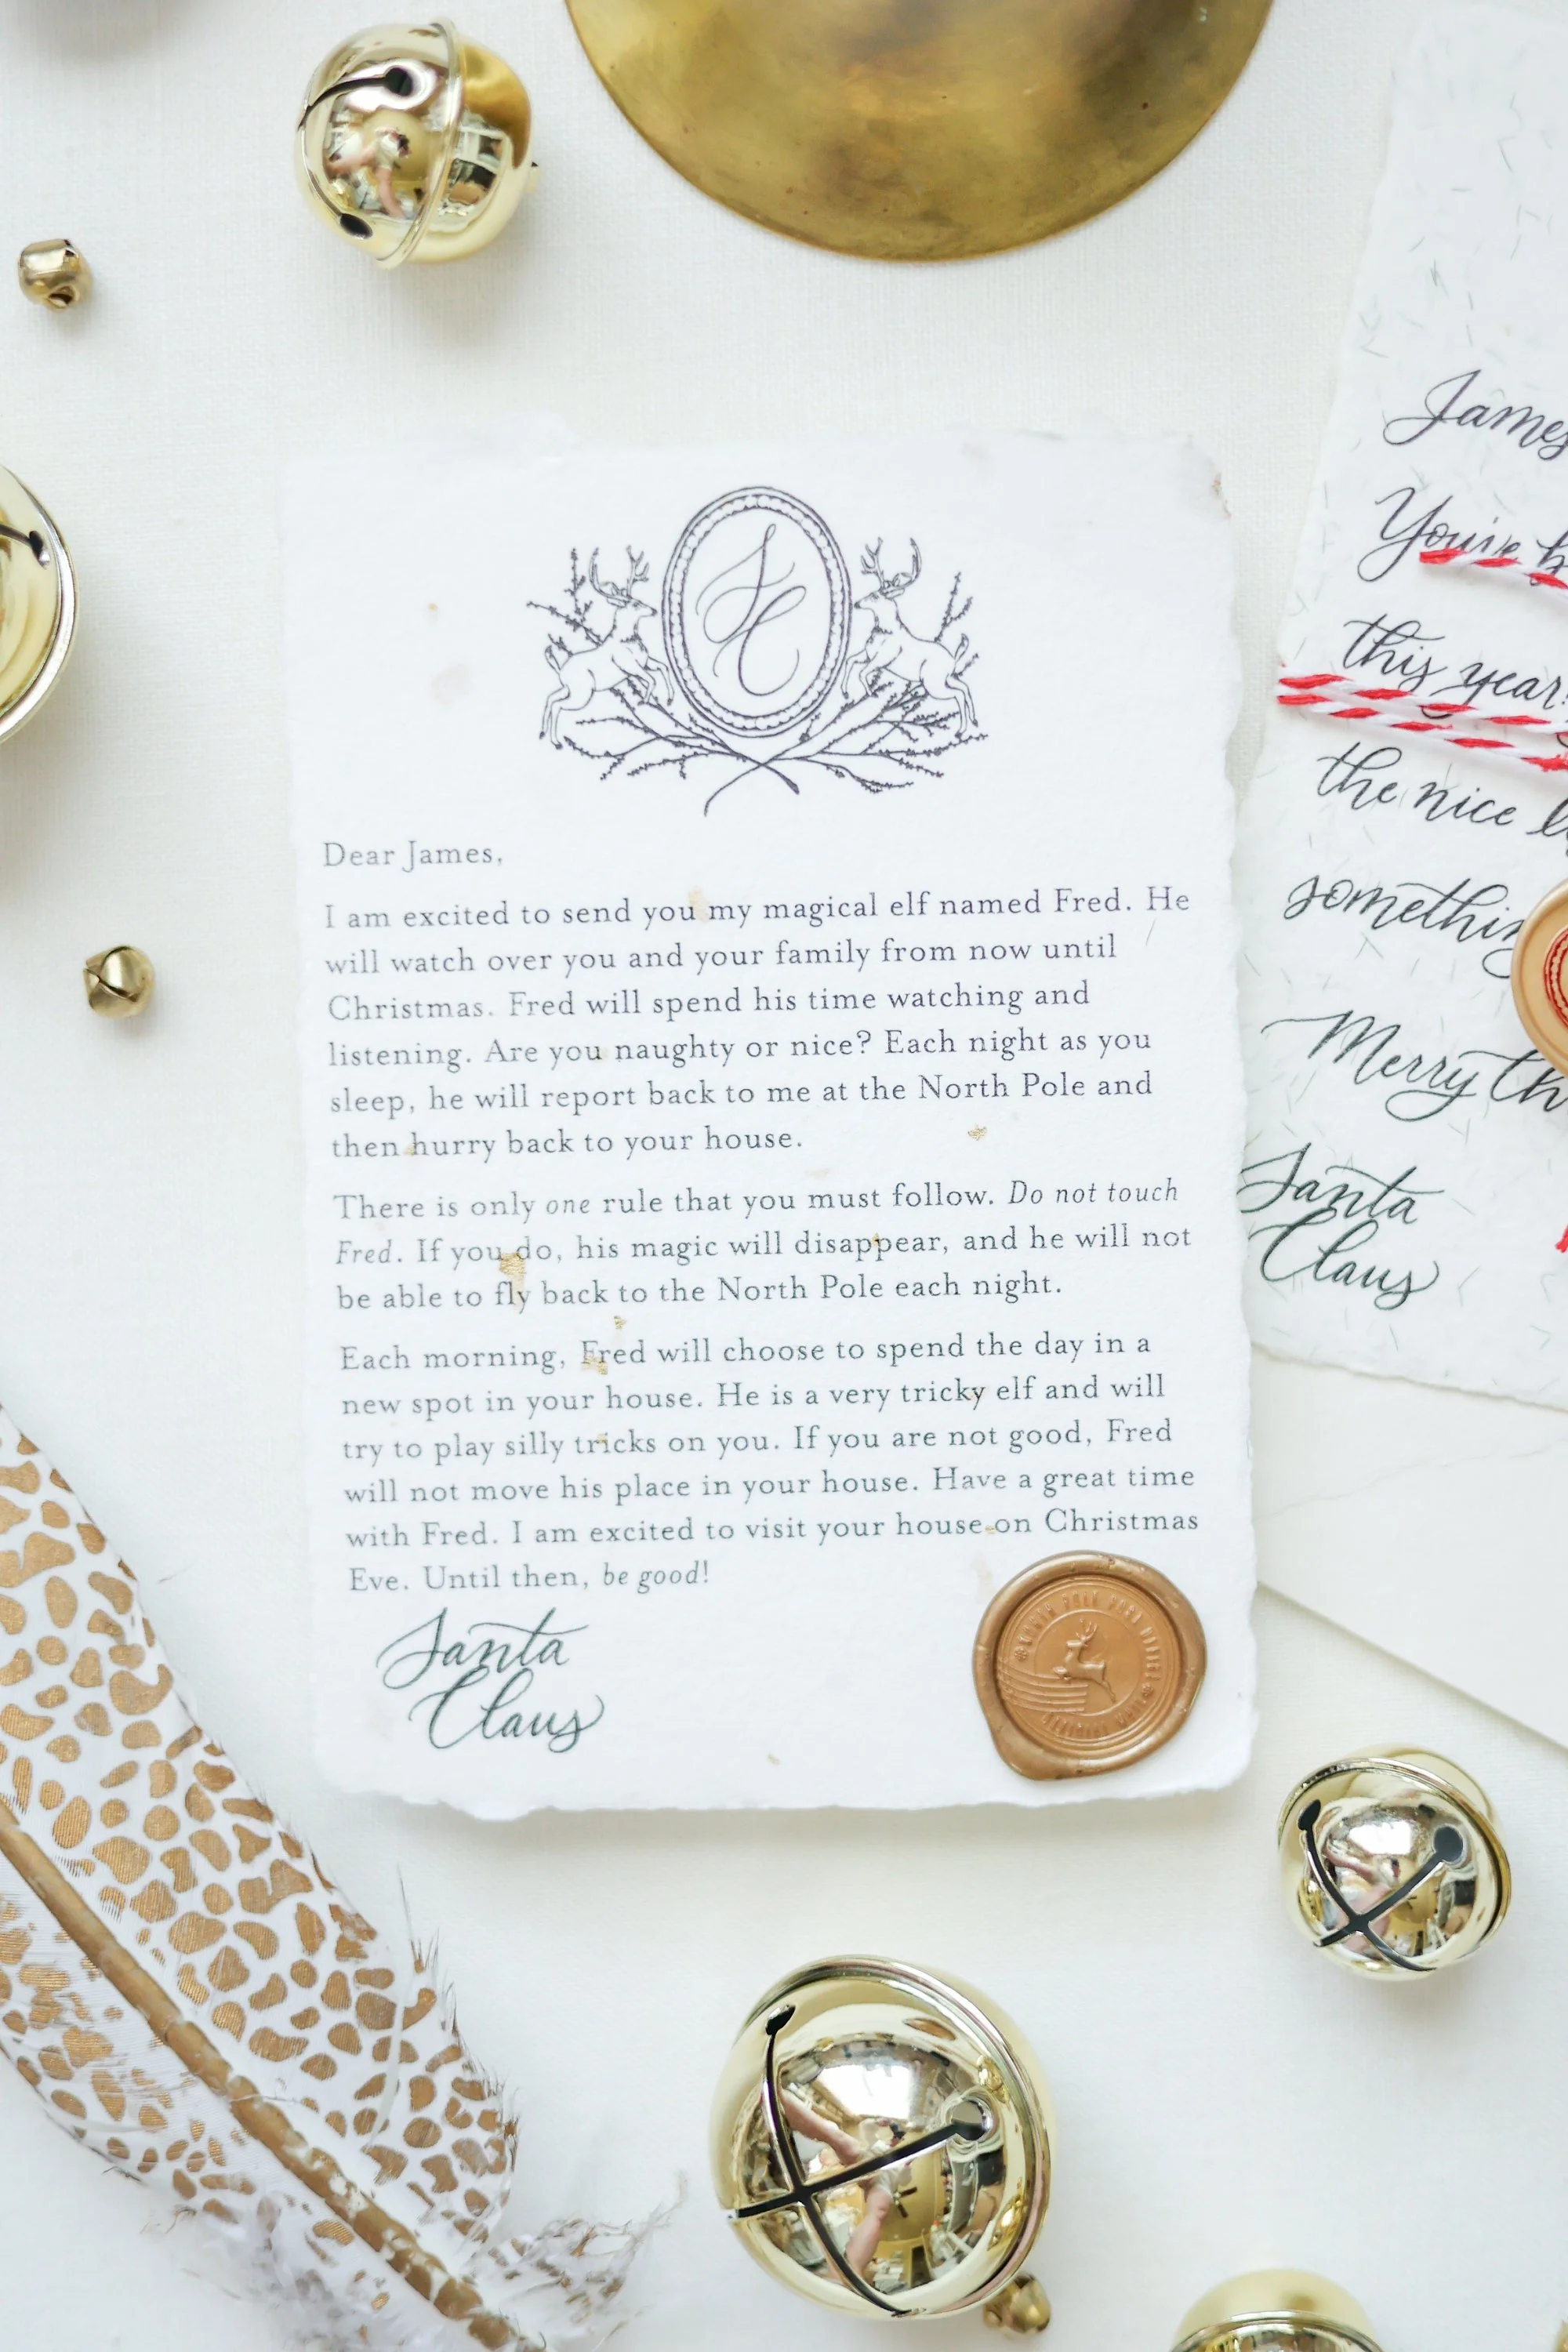 SC
Dear James,
I am excited to send you my magical elf named Fred. He
will watch over you and your family from now until
Christmas. Fred will spend his time watching and
listening. Are you naughty or nice? Each night as you
sleep, he will report back to me at the North Pole and
then hurry back to your house.
There is only one rule that you must follow. Do not touch
Fred. If you do, his magic will disappear, and he will not
be able to fly back to the North Pole each night.
Each morning, Fred will choose to spend the day in a
new spot in your house. He is a very tricky elf and will
try to play silly tricks on you. If you are not good, Fred
will not move his place in your house. Have a great time
with Fred. I am excited to visit your house on Christmas
Eve. Until then, be good!
Santa
Claus
NORTH POLE POST OFFICE
James
You've
this year
the nice
Merry
Santa
Claus